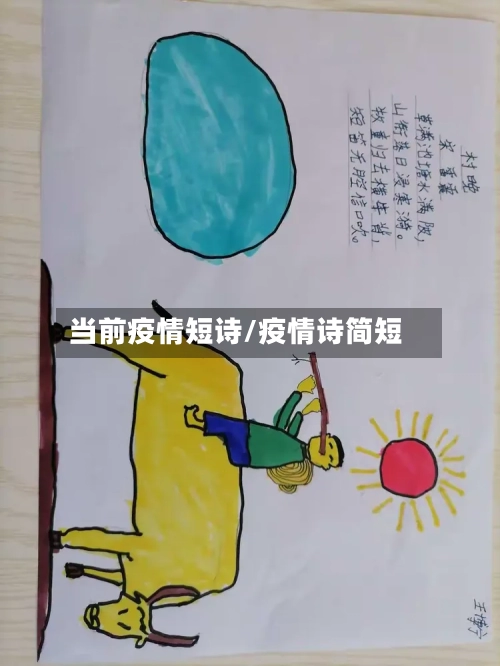 村晚
宋 雷震
草满池塘水满陂，
山衔落日浸寒漪。
牧童归去横牛背，
短笛无腔信口吹。
当前疫情短诗/疫情诗简短